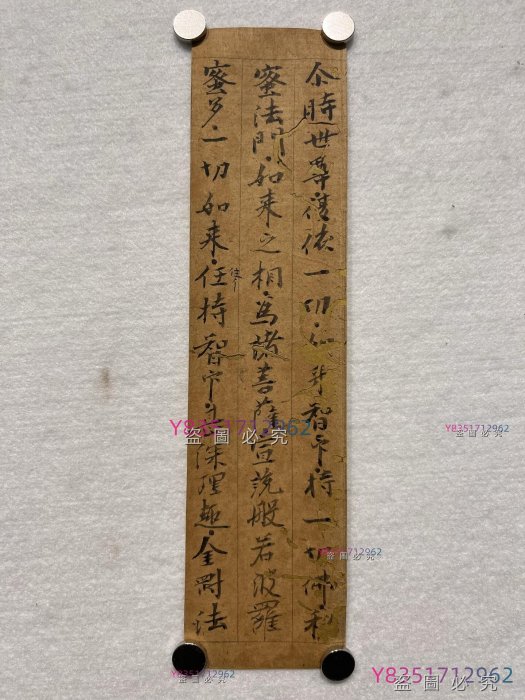 尒時世尊復依一切身智印持一切佛秘
蜜法門如来之相為諸菩薩宣説般若波羅
蜜多一切如来任持智印甚深理趣金剛法
Y8351712962
盜圖必究
Y8351712962
盜圖必究
Y8351712962
盜圖必究
Y8351712962
盜圖必究
Y8351712962
盜圖必究